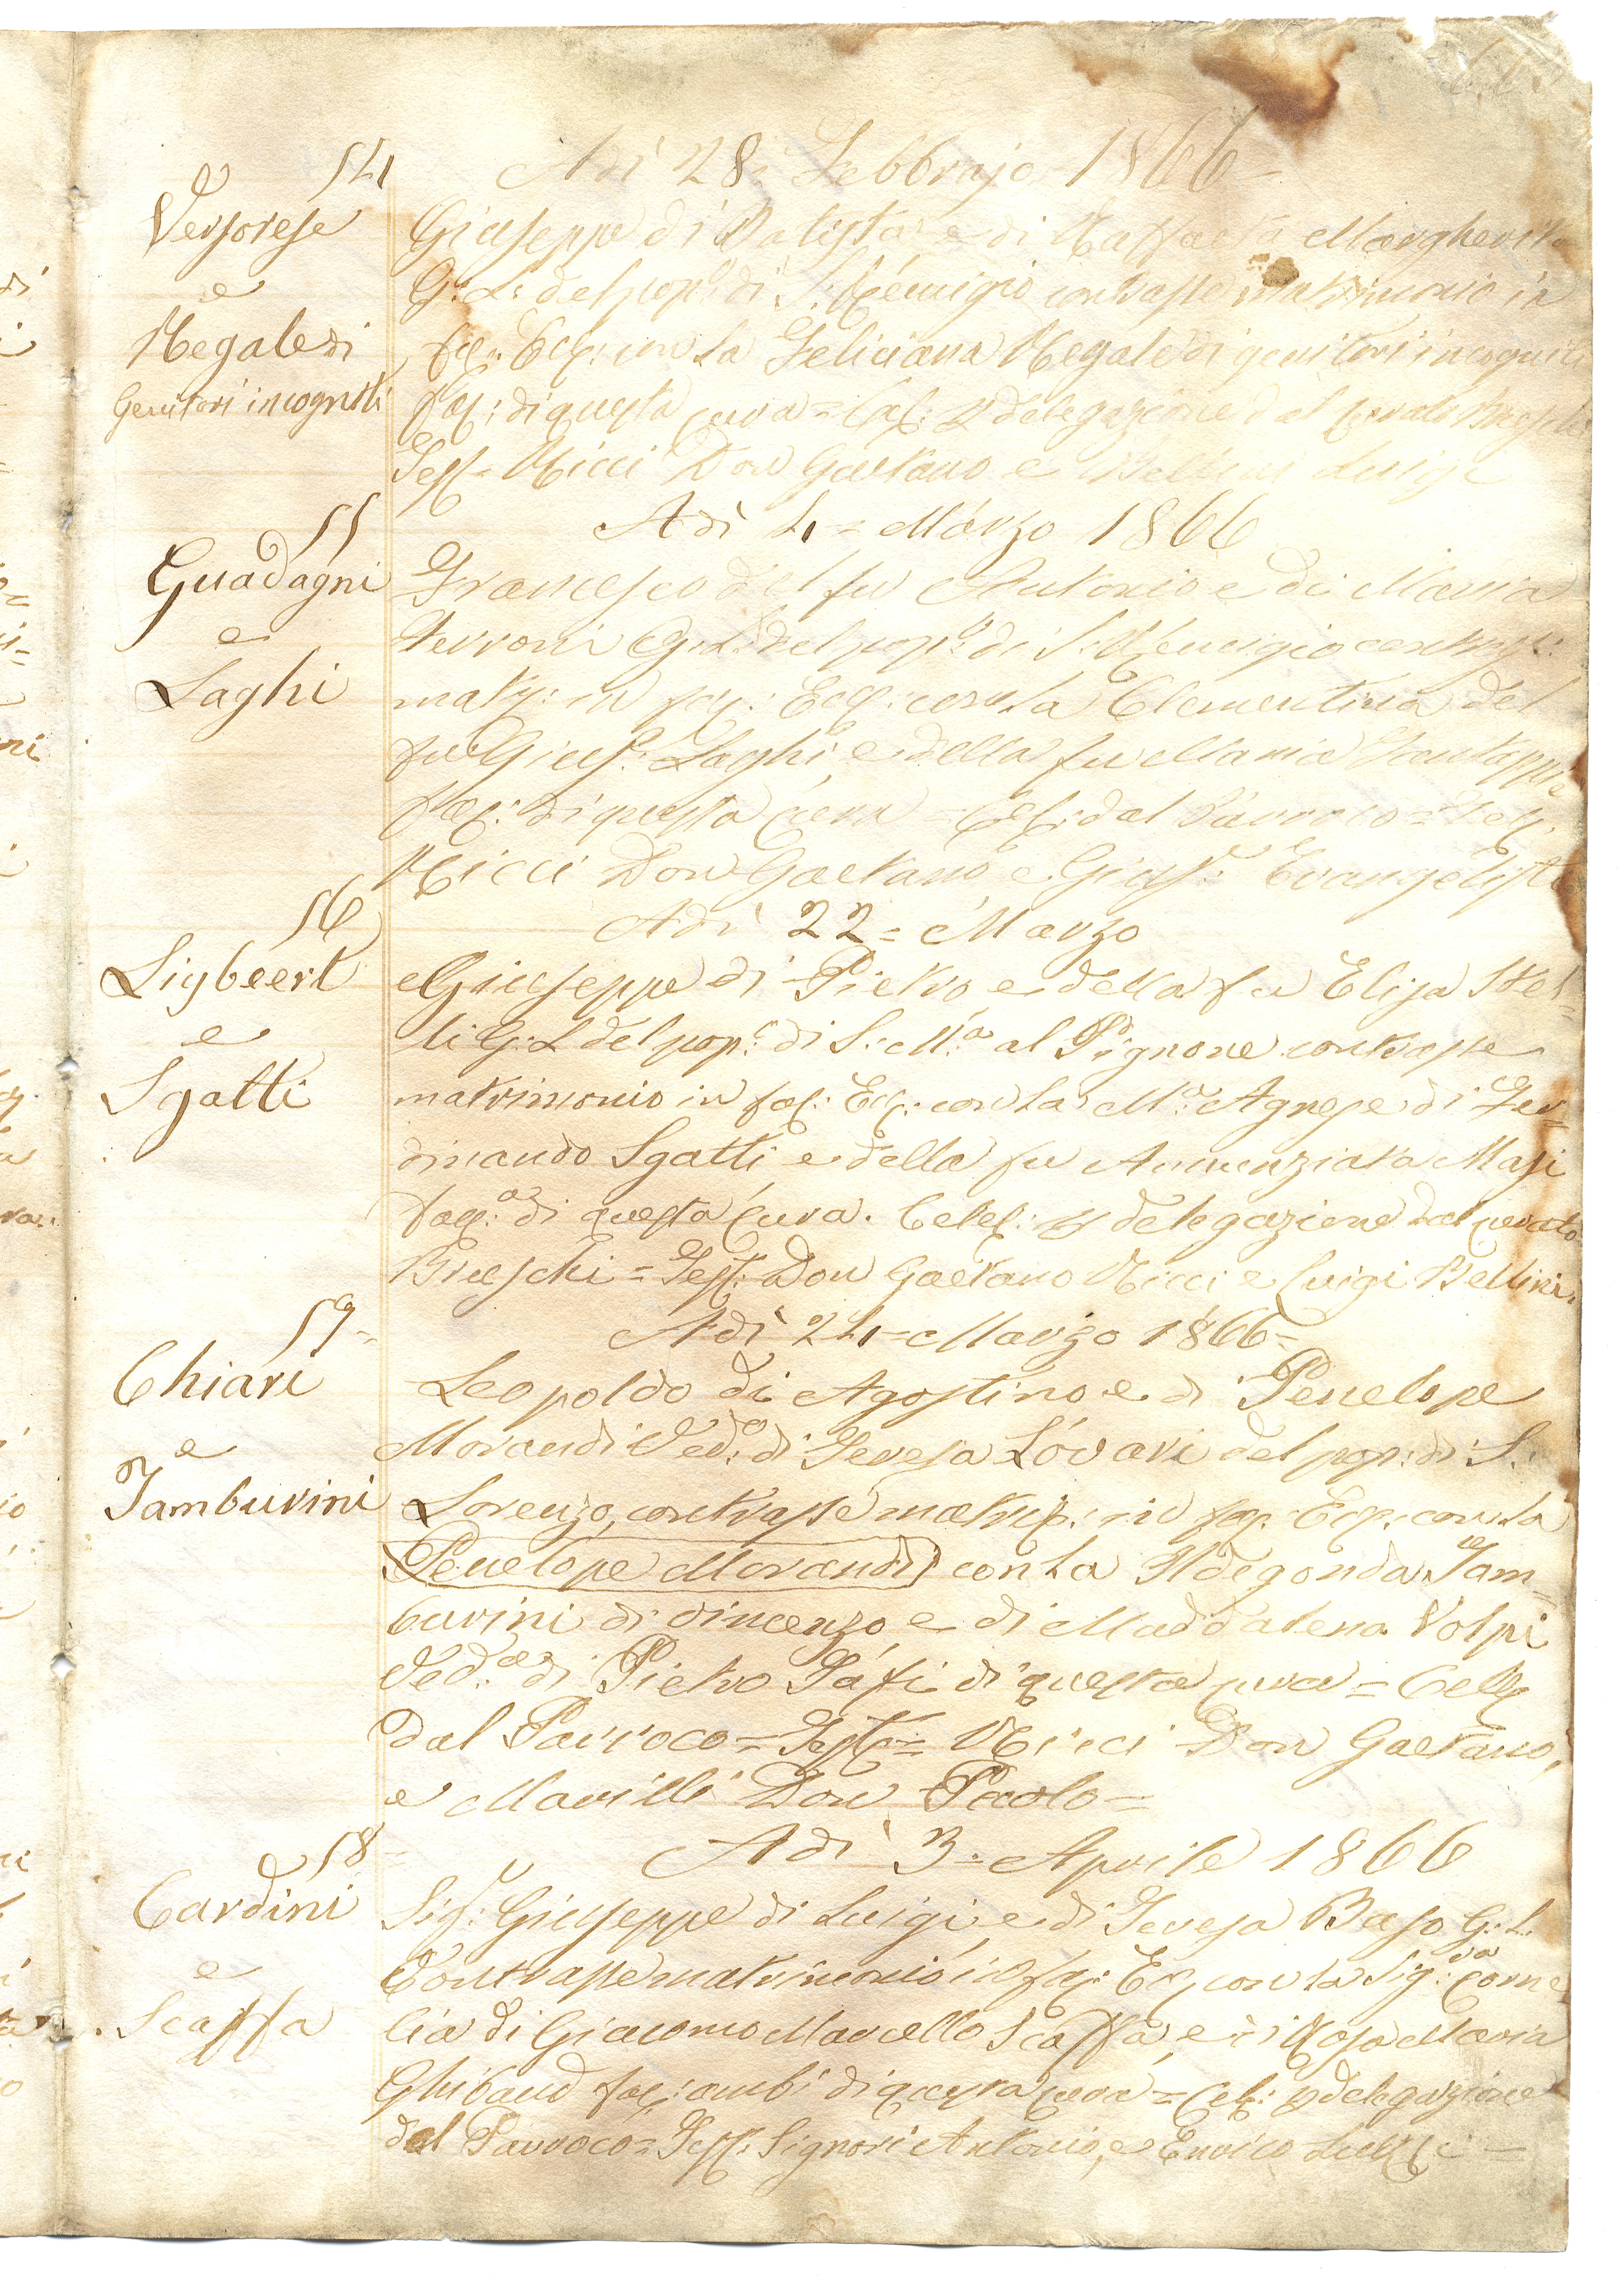 54
Adì 28: Febbrajo 1866
Versorese
e
Regale di
Genitori incogniti
Giuseppe di Batista e di Raffaella Margherita
G: L: del pop: di S: Remigio contrasse matrimonio in
fac: Ecc: con la Feliciana Regale di genitori incogniti
fac: di questa cura = Cel: p delegazione dal curato Brieschi
Tess = Ricci Don Gaetano e Bellini Luigi
55
Adì 4 = Marzo 1866
Guadagni
e
Laghi
Francesco del fu Antonio e di Maria
Ferroni G: L: del pop: di S: Remigio contrass:
matr: in fac: Ecc: con la Clementina del
fu Gius: Laghi, e della fu Maria
fac: di questa cura = Cel: dal Parroco = Tess
Ricci Don Gaetano e Gius: Evangelisti
56
Adì 22 = Marzo
Ligbeert
e
Sgatti
Giuseppe di Pietro e della fu Elisa Stel=
li G: L del pop: di S: M:a al Pignone contrasse
matrimonio in fac: Ecc: con la M:a Agnese di Fer=
dinando Sgatti e della fu Annunziata Masi
fac: di questa Cura. Celeb: p delegazione dal curato
Brieschi = Tess: Don Gaetano Ricci e Luigi Bellini.
57 =
Adì 24 = Marzo 1866 =
Chiari
e
Tamburini
Leopoldo di Agostino e di Penelope
Morandi Ved:o di Teresa Lóvari del pop: di S:
Lorenzo, contrasse matrip: in fac: Ecc: con la
Penelope Morandi con la Ildegonda Tam=
burini di Vincenzo e di Maddalena Volpi
Ved:a di Pietro Páfi di questa cura = Celeb
dal Parroco = Test: = Ricci Don Gaetano,
e Marilli Don Paolo =
58
Adì 3 = Aprile 1866
Cardini
e
Scaffa
Sig: Giuseppe di Luigi, e di Teresa Baso G: L.
Contrasse matrimonio in fac: Ecc con la Sig:ra Corne
lia di Giacomo Marcello Scaffa, e di Rosa Maria
Ghibaud fac: ambi di questa cura = Cel: p delegazione
dal Parroco = Tess: Signori Antonio, e Enrico